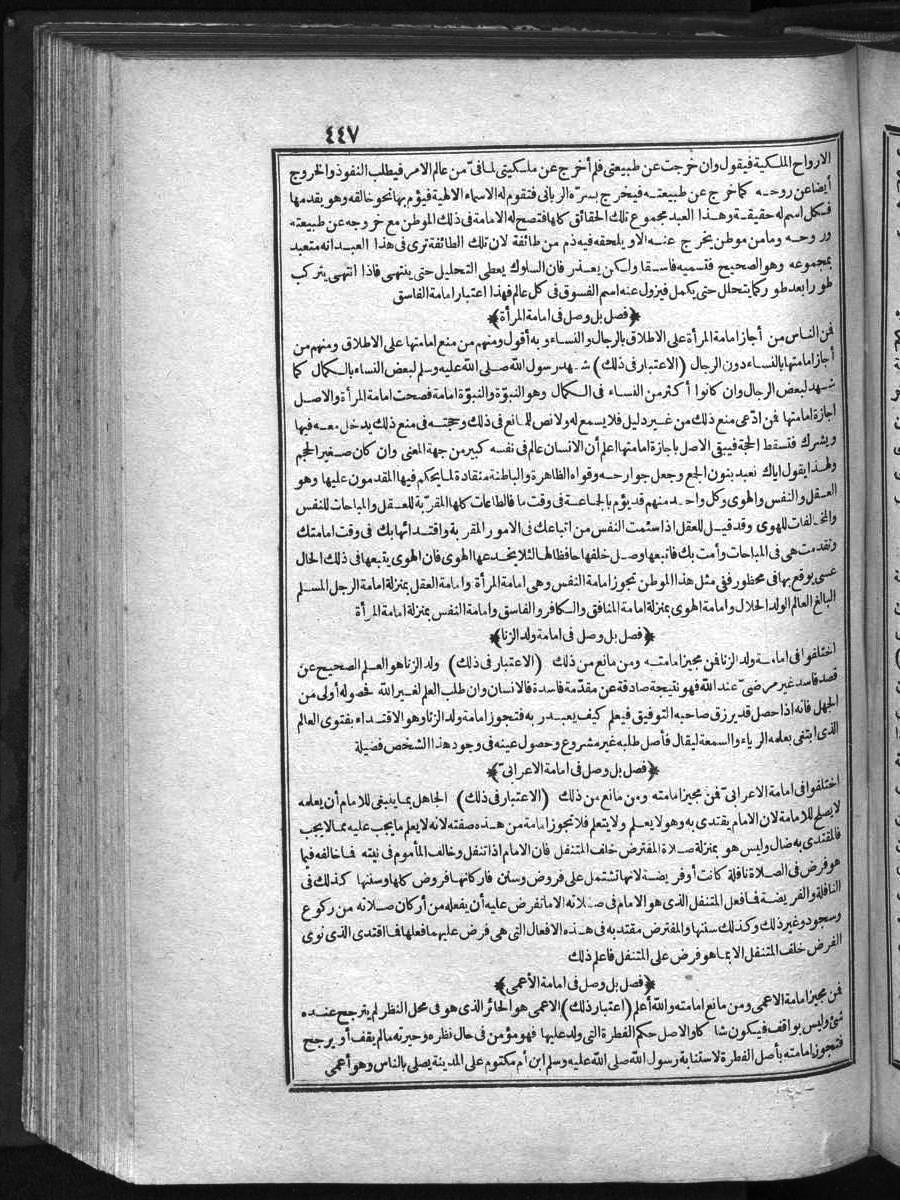 ٤٤٧
الارواح الملكية فيقول وان خرجت عن طبيعتى فلم أخرج عن ملكيتى لما فىّ من عالم الامر فيطلب النفوذ والخروج
أيضا عن روحه كما خرج عن طبيعته فيخرج بسرّه الربانى فتقوم له الاسماء الالهية فيؤم بها نحو خالقه وهو يقدمها
فكل اسم له حقيقة وهذا العبد مجموع تلك الحقائق كلها فتصح له الامامة فى ذلك الموطن مع خروجه عن طبيعته
وروحه ومامن موطن يخرج عنه الا ويلحقه فيه ذم من طائفة لان تلك الطائفة ترى فى هذا العبد انه متعبد
بمجموعه وهو الصحيح فتسميه فاسقا ولكن يعذر فان السلوك يعطى التحليل حتى ينتهى فاذا انتهى يتركب
طورا بعد طور كما يتحلل حتى يكمل فيزول عنه اسم الفسوق فى كل عالم فهذا اعتبار امامة الفاسق
﴿فصل بل وصل فى امامة المرأة﴾
فمن الناس من أجاز امامة المرأة على الاطلاق بالرجال والنساء وبه أقول ومنهم من منع امامتها على الاطلاق ومنهم من
أجاز امامتها بالنساء دون الرجال (الاعتبار فى ذلك) شهد رسول الله صلى الله عليه وسلم لبعض النساء بالكمال كما
شهد لبعض الرجال وان كانوا أكثر من النساء فى الكمال وهو النبوّة والنبوّة امامة فصحت امامة المرأة والاصل
اجازة امامتها فمن ادّعى منع ذلك من غير دليل فلا يسمع له ولا نص للمانع فى ذلك وحجته فى منع ذلك يدخل معه فيها
ويشرك فتسقط الحجة فيبقى الاصل باجازة امامتها اعلم أن الانسان عالم فى نفسه كبير من جهة المعنى وان كان صغير الحجم
ولهذا يقول اياك نعبد بنون الجمع وجعل جوارحه وقواه الظاهرة والباطنة منقادة لما يحكم فيها المقدمون عليها وهو
العقل والنفس والهوى وكل واحد منهم قد يؤم بالجماعة فى وقت ما فالطاعات كلها المقرّبة للعقل والمباحات للنفس
والمخالفات للهوى وقد قيل للعقل اذا سئمت النفس من اتباعك فى الامور المقربة واقتدائها بك فى وقت امامتك
وتقدمت هى فى المباحات وأمت بك فاتبعها وصل خلفها حافظا لها لئلا يخدعها الهوى فان الهوى يتبعها فى ذلك الحال
عسى يوقع بها فى محظور ففى مثل هذا الموطن تجوز امامة النفس وهى امامة المرأة وامامة العقل بمنزلة امامة الرجل المسلم
البالغ العالم الولد الحلال وامامة الهوى بمنزلة امامة المنافق والكافر والفاسق وامامة النفس بمنزلة امامة المرأة
﴿فصل بل وصل فى امامة ولد الزنا﴾
اختلفوا فى امامة ولد الزنا فمن مجيز امامته ومن مانع من ذلك (الاعتبار فى ذلك) ولد الزنا هو العلم الصحيح عن
قصد فاسد غير مرضىّ عند الله فهو نتيجة صادقة عن مقدّمة فاسدة فالانسان وان طلب العلم لغير الله فحصوله أولى من
الجهل فانه اذا حصل قد يرزق صاحبه التوفيق فيعلم كيف يعبد ربه فتجوز امامة ولد الزنا وهو الاقتداء بفتوى العالم
الذى ابتغى بعلمه الرياء والسمعة ليقال فأصل طلبه غير مشروع وحصول عينه فى وجود هذا الشخص فضيلة
﴿فصل بل وصل فى امامة الاعرابىّ﴾
اختلفوا فى امامة الاعرابىّ فمن مجيز امامته ومن مانع من ذلك (الاعتبار فى ذلك) الجاهل بما ينبغى للامام أن يعلمه
لا يصلح للامامة لان الامام يقتدى به وهو لا يعلم ولا يتعلم فلا تجوز امامة من هذه صفته لانه لا يعلم ما يجب عليه مما لا يجب
فالمقتدى به ضال وليس هو بمنزلة صلاة المفترض خلف المتنفل فان الامام اذا تنفل وخالف المأموم فى نيته فما خالفه فيما
هو فرض فى الصلاة نافلة كانت أو فريضة لانها تشتمل على فروض وسنن فاركانها فروض كلها وسننها كذلك فى
النافلة والفريضة فما فعل المتنفل الذى هو الامام فى صلاته الا ما تفرض عليه أن يفعله من أركان صلاته من ركوع
وسجود وغير ذلك وكذلك سننها والمفترض مقتد به فى هذه الافعال التى هى فرض عليهما فعلها فما اقتدى الذى نوى
الفرض خلف المتنفل الا بما هو فرض على المتنفل فاعلم ذلك
﴿فصل بل وصل فى امامة الأعمى﴾
فمن مجيز امامة الاعمى ومن مانع امامته والله أعلم (اعتبار ذلك) الاعمى هو الحائر الذى هو فى محل النظر لم يترجح عنده
شئ وليس بواقف فيكون شاكا والاصل حكم الفطرة التى ولد عليها فهو مؤمن فى حال نظره وحيرته ما لم يقف أو يرجح
فتجوز امامته بأصل الفطرة لاستنابة رسول الله صلى الله عليه وسلم ابن أم مكتوم على المدينة يصلى بالناس وهو أعمى